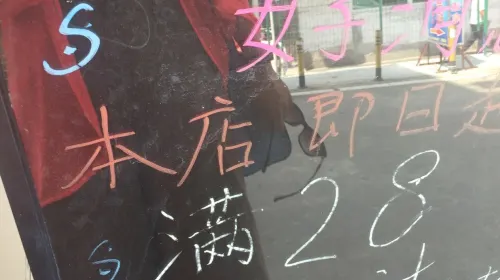 S 女子
本店即日起
S 满28